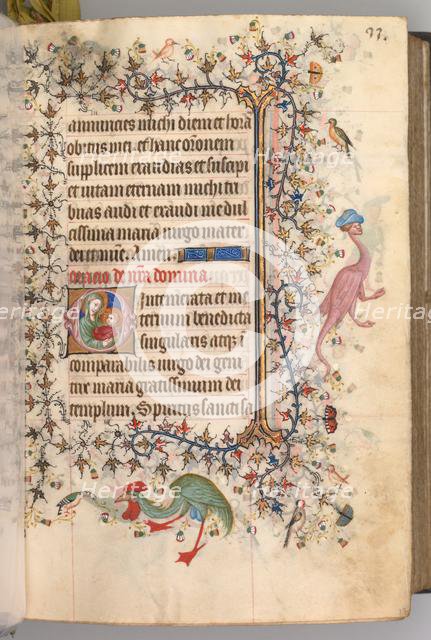 annuncies michi diem et horā
obitus mei. et hanc orōnem
supplicem exaudias et suscipi
et vitam eternam michi tri
buas audi et exaudi me dul
cissima maria virgo mater
dei et mīe. Amen.
oracio de nr̄a domina
O Intemerata et in e
ternum benedicta
singularis atq̄
comparabilis virgo dei geni
trix maria gratissimum dei
templum. Spiritus sancti sa
Heritage
Images